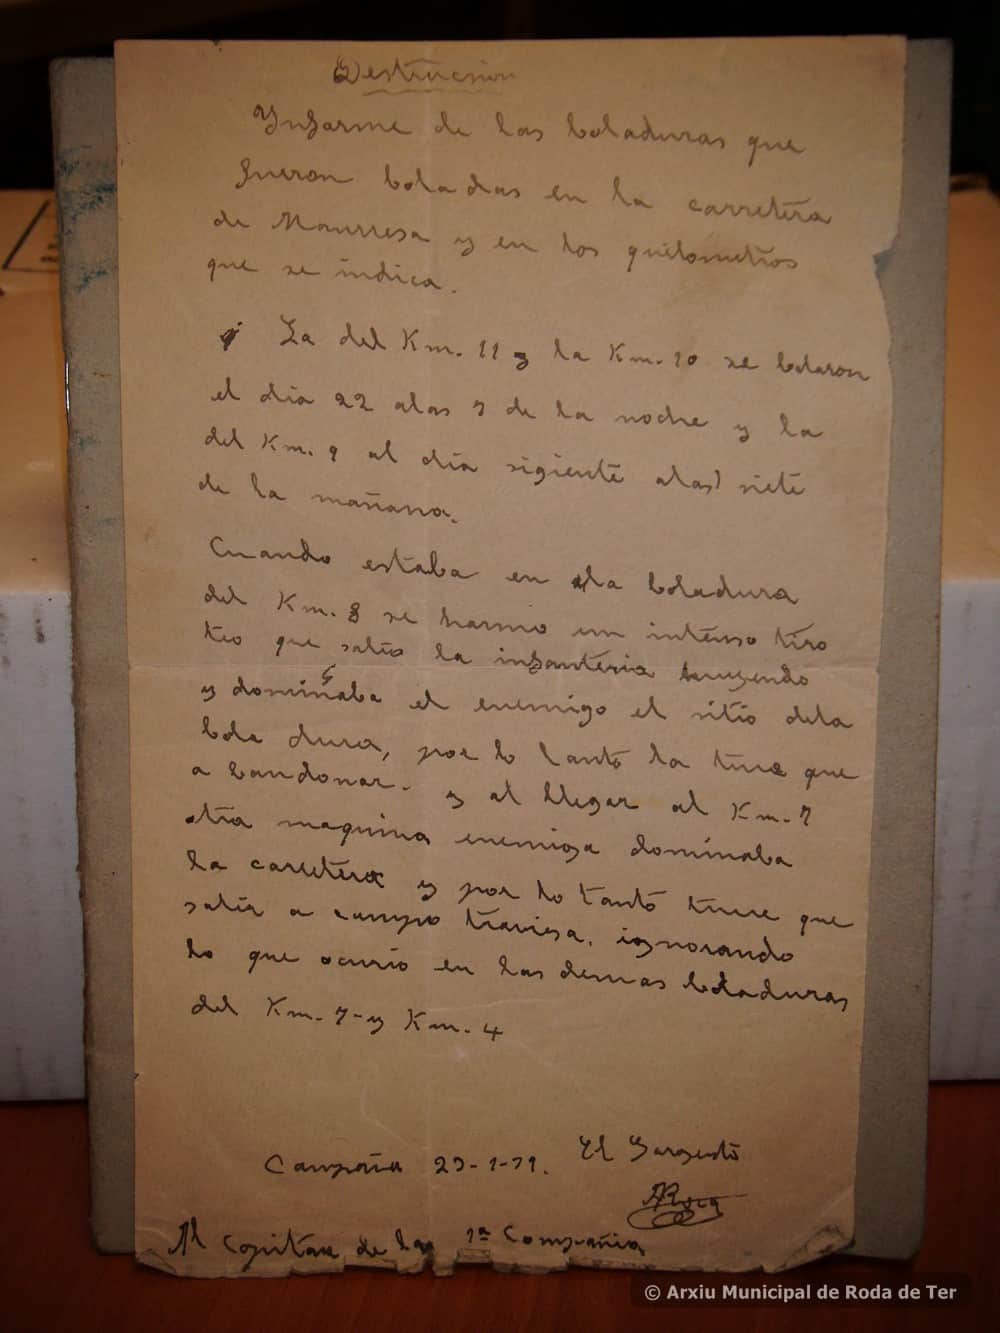 Destrucsion
Ynforme de las boladuras que
fueron boladas en la carretera
de Manrresa y en los quilometros
que se indica.
La del Km. 11 y la Km. 10 se bolaron
el dia 22 alas 7 de la noche y la
del Km. 9 al dia sigiente alas siete
de la mañana.
Cuando estaba en la boladura
del Km. 8 se harmo un intenso tiro
teo que salio la infanteria huyendo
y dominaba el enemigo el sitio dela
bola dura, por lo tanto la tuve que
a bandonar. y al llegar al Km. 7
otra maquina enemiga dominaba
la carretera y por lo tanto tuve que
salir a campo traviesa. ignorando
lo que ocurio en las demas boladuras
del Km. 7 y Km. 4
Campaña 23-1-39. El Sargento
ARoca
Al Capitan de la 1ª Compañia
© Arxiu Municipal de Roda de Ter